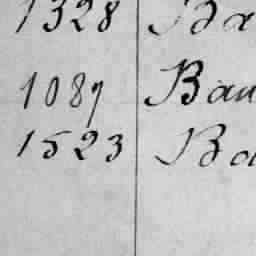 1328 Ba
1089 Bau
1523 Ba